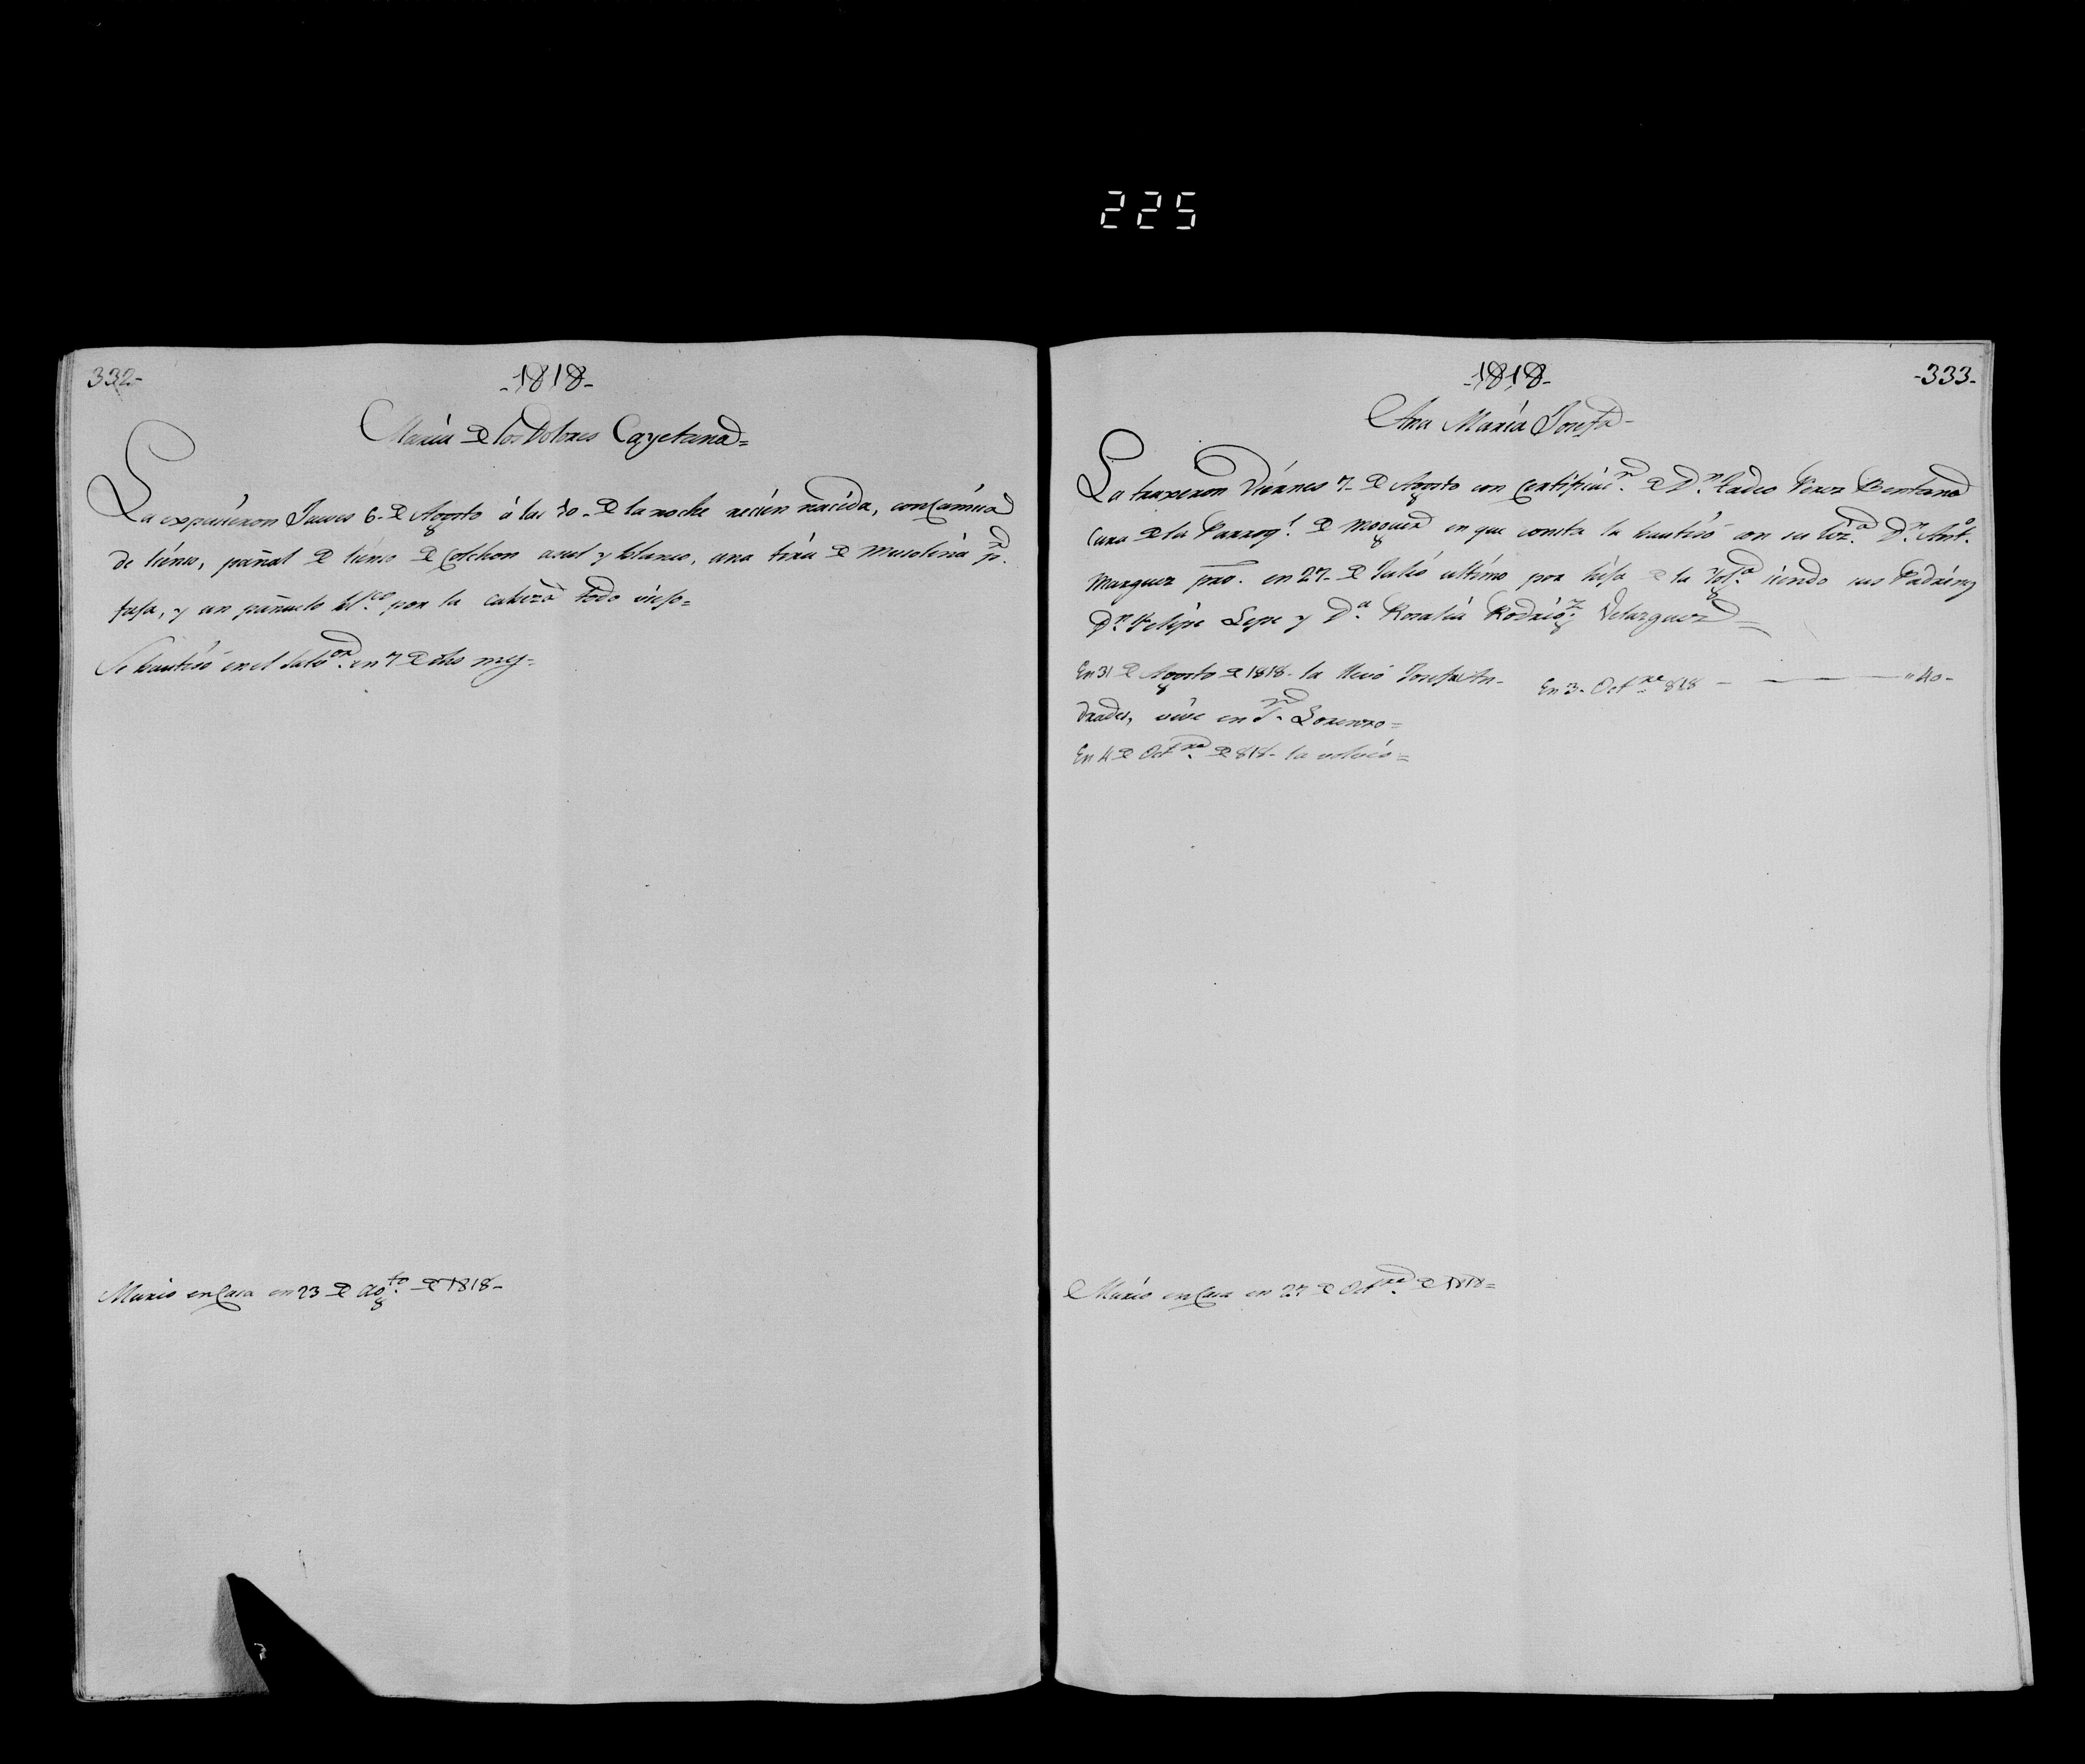 225
332-
-1818-
María de los Dolores Cayetana=
La expusieron Jueves 6- de Agosto á las 10- de la noche recien nacida, con Camisa
de lienso, pañal de lienso de Colchon azul y blanco, una tira de Muselina p.ª
faja, y un pañuelo bl.co por la cabeza todo viejo=
Se bautisó en el en 7 de dho mes=
Murio en Casa en 23 de Ag.to de 1818-
-1818-
-333-
Ana María Josefa-
La traxeron Viernes 7- de Agosto con Certificac.n de D.n Tadeo Perez Bentana
Cura de la Parroq.l de Moguer en que consta la bautisó con su liz.a D.n Ant.o
Marquez pro. en 27- de Julio ultimo por hija de la Ygl.a siendo sus Padrinos
D.n Felipe Lepe y D.a Rosalia Rodrig.z Velazquez=
En 31 de Agosto de 1818- la llevó Josefa An-
drades, vive en S.n Lorenzo=
En 3- Oct.re 818 - "40-
En 4 de Oct.re de 818- la volvió=
Murió en Casa en 27 de Oct.re de 1818=